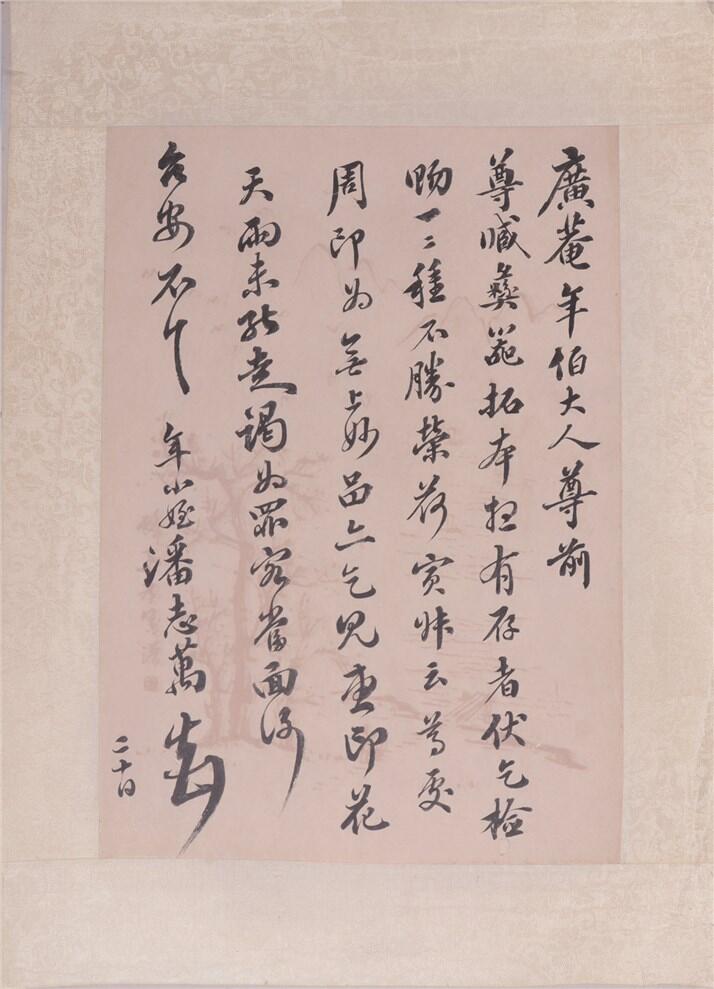 廣菴年伯大人尊前
尊臧彝器拓本想有存者伏乞檢
賜一二種不勝榮荷實㭊云尊處
周印為無上妙品亦乞見惠印花
天雨未能走謁為罪容當面謝
台安不一 年小姪潘志萬
二十日